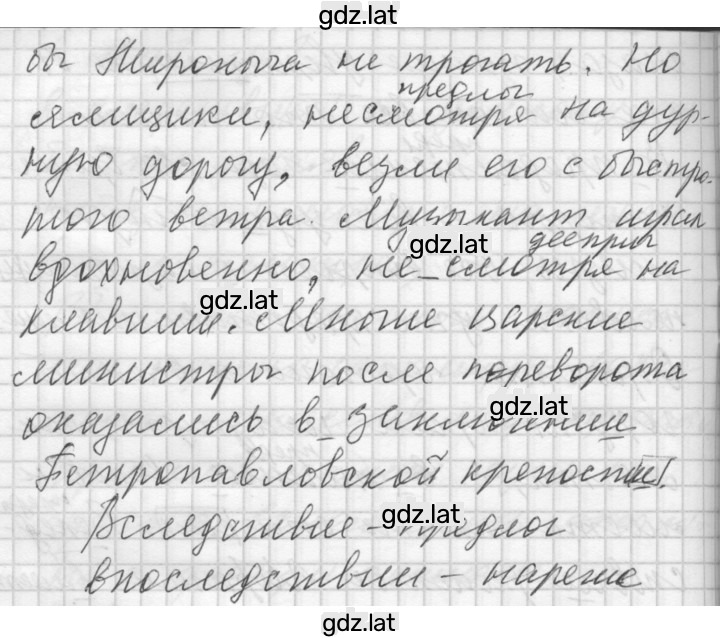 gdz.lat
бы Мироныча не трогать. Но
предлог
ямщики, несмотря на дур-
ную дорогу, везли его с быстро-
того ветра. Музыкант играл
gdz.lat
дееприч
вдохновенно, не смотря на
gdz.lat
клавиши. Многие царские
министры после переворота
gdz.lat
оказались в заключении
Петропавловской крепости.
gdz.lat
Вследствие – предлог
впоследствии – наречие
gdz.lat